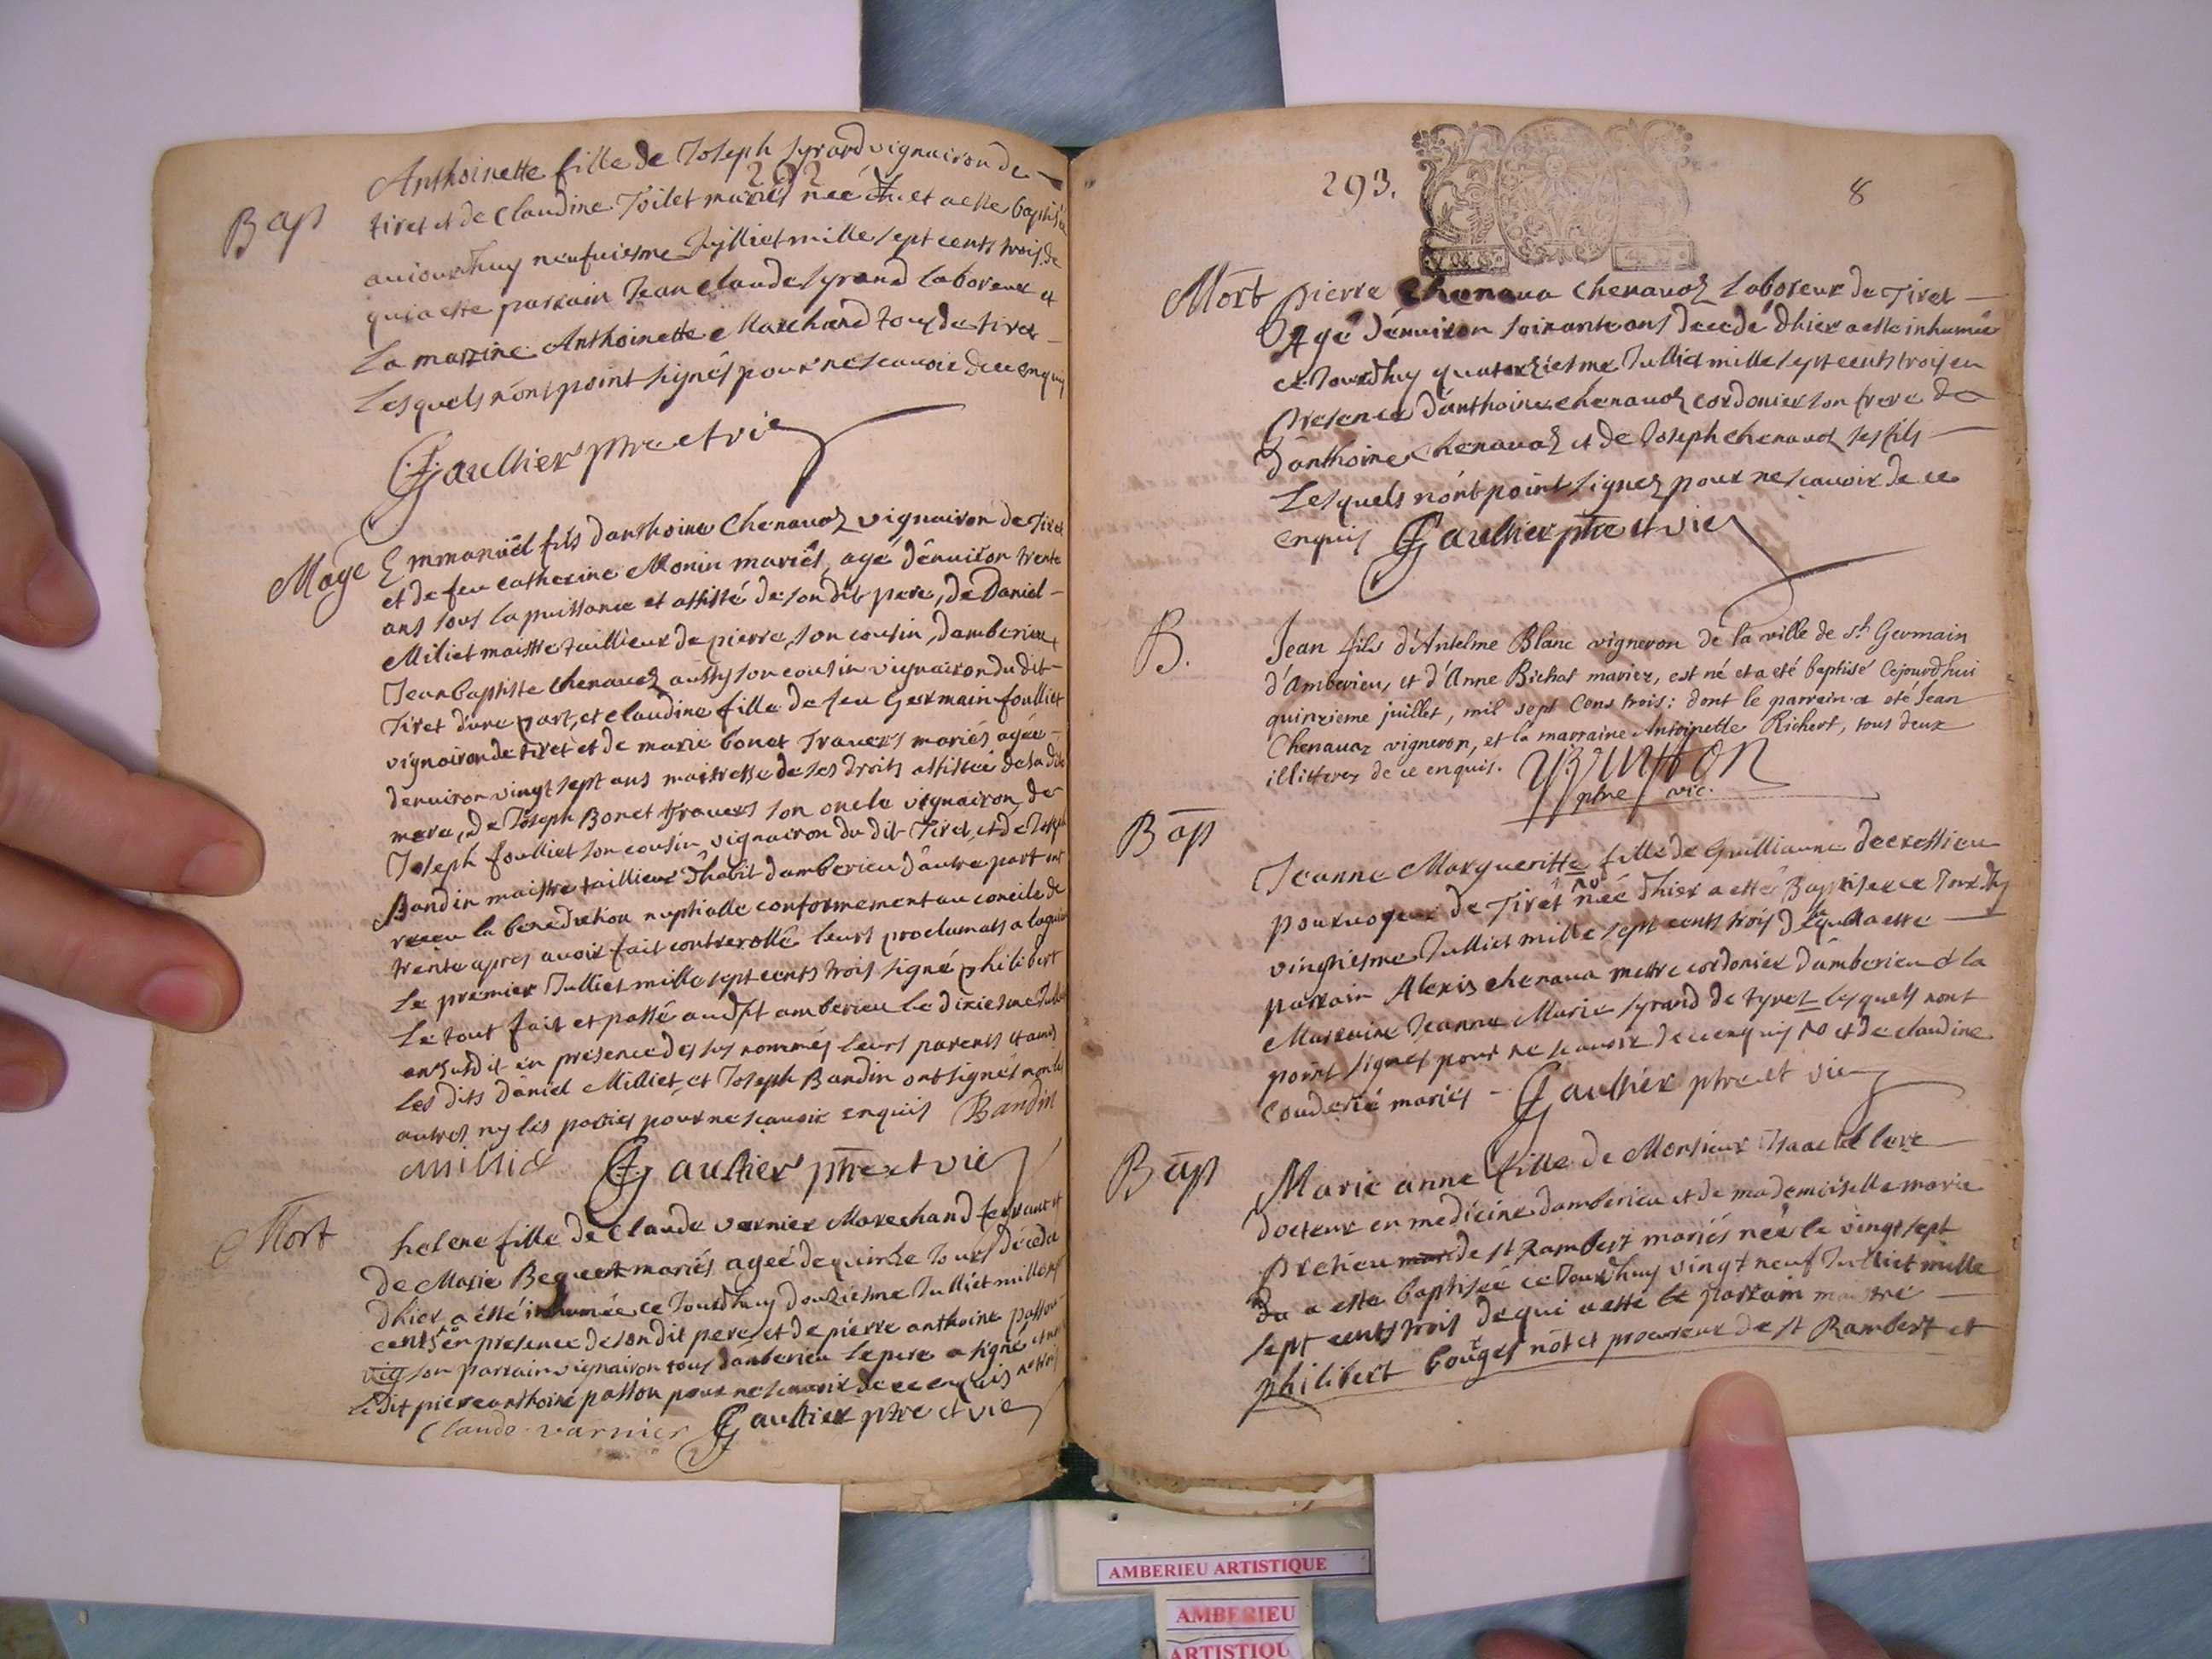 292
Bap
Anthoinette fille de Joseph Syrand vignairon de
tiret et de Claudine Joilet mariés neé et a este baptisée
aujourdhuy neufuiesme Jylliet mille sept cents trois, de
qui a este parrain Jean Claude Syrand laboreur et
la marrine Anthoinette Marchand tous de tiret
Lesquels n'ont point signés pour ne scauoir de ce enquis
Gaultier ptre et vic
Mage
Emmanuel fils danthoine Chenauaz vignairon de Tiret
et de feu catherine Monin mariés, agé denuiron trente
ans sous la puissance et assisté de son dit pere, de Daniel
Miliet maistre taillieur de pierre, son cousin, damberieu,
Jean baptiste Chenauaz aussy son cousin vignairon du dit
Tiret d'une part, et claudine fille de feu Germain foulliet
vignairon de tiret et de marie bonet Trauers mariés agée
denuiron vingt sept ans maitresse de ses droits assistée de sa dite
mere, de Joseph Bonet trauers son oncle vignairon, de
Joseph foulliet son cousin vignairon du dit Tiret, et de Joseph
Bandin maistre taillieur d'habit damberieu d'autre part ont
receu la benediction nuptialle conformement au concile de
trente apres auoir fait controrollé leurs proclamats a lagnieu
le premier Julliet mille sept cents trois signé philibert
Le tout fait et passé audit amberieu le dixiesme Julliet
an susdit en presence des sus nommés leurs parents et amis
les dits daniel Milliet et Joseph Bandin ont signés non les
autres ny les parties pour ne scauoir enquis Bandin
Milliet Gaultier ptre et vic
Mort
helene fille de Claude vernier Marechand ferrant et
de Marie Beguet mariés agée de quinze Jours décédée
dhier a esté inhumée ce Jourdhuy douziesme Julliet mille sept
cents en presence de son dit pere et de pierre anthoine passou
vig son parrain vignairon tous damberieu le pere a signé et non
le dit pierre anthoine passou pour ne scauoir de ce enquis trois
Claude varnier Gaultier ptre et vic
293.
8
Mort
pierre Chenaua Chenauaz laboreur de Tiret
Agé denuiron soixante ans decedé dhier a este inhumée
ce Jourdhuy quatorziesme Julliet mille sept cents trois en
presence d'anthoine chenauaz cordonier son frere de
d'anthoine Chenauaz et de Joseph chenauaz ses fils
Lesquels n'ont point signez pour ne scauoir de ce
enquis Gaultier ptre et vic
B.
Jean fils d'Antelme Blanc vigneron de la ville de st Germain
d'Amberieu, et d'Anne Bichat mariez, est né et a eté baptisé Cejourd'hui
quinzieme juillet, mil sept Cens trois: dont le parrein a eté Jean
Chenauaz vigneron, et la marraine Antoinette Richert, tous deux
illitterez de ce enquis.
ptre vic.
Bap
Jeanne Margueritte fille de Guilliaume decressieu
pouruoyeur de Tiret née dhier a esté Baptisee ce Jourdhuy
vingtiesme Julliet mille sept cents trois de a este
parrain Alexis chenaua mettre cordonier d'amberieu et la
Marraine Jeanne Marie Syrand de tyret lesquels nont
point signes pour ne scauoir de ce enquis no et de claudine
Couderié mariés - Gaultier ptre et vic
Bap
Marie anne fille de Monsieur
docteur en medicine damberieu et de mademoiselle marie
prehieu de st Rambert mariés neé le vingt sept
du a este baptisée ce Jourdhuy vingt neuf Julliet mille
sept cents trois de qui a esté le parrain maitre
philibert bouget not et procureur de st Rambert et
AMBERIEU ARTISTIQUE
AMBERIEU
ARTISTIQU